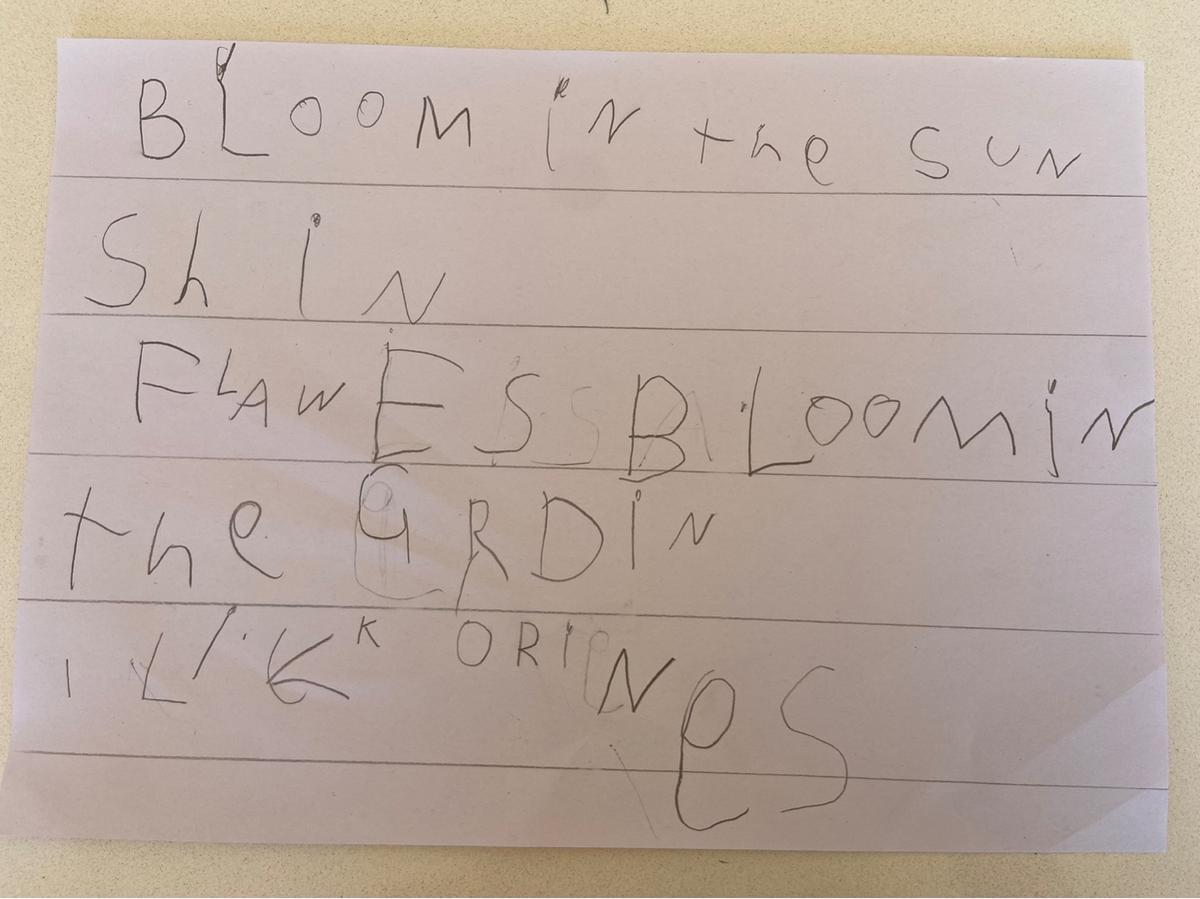 BLOOM iN the SUN
ShiN
FLAWES BLOOMiN
the GRDiN
i LiK K ORiNeS